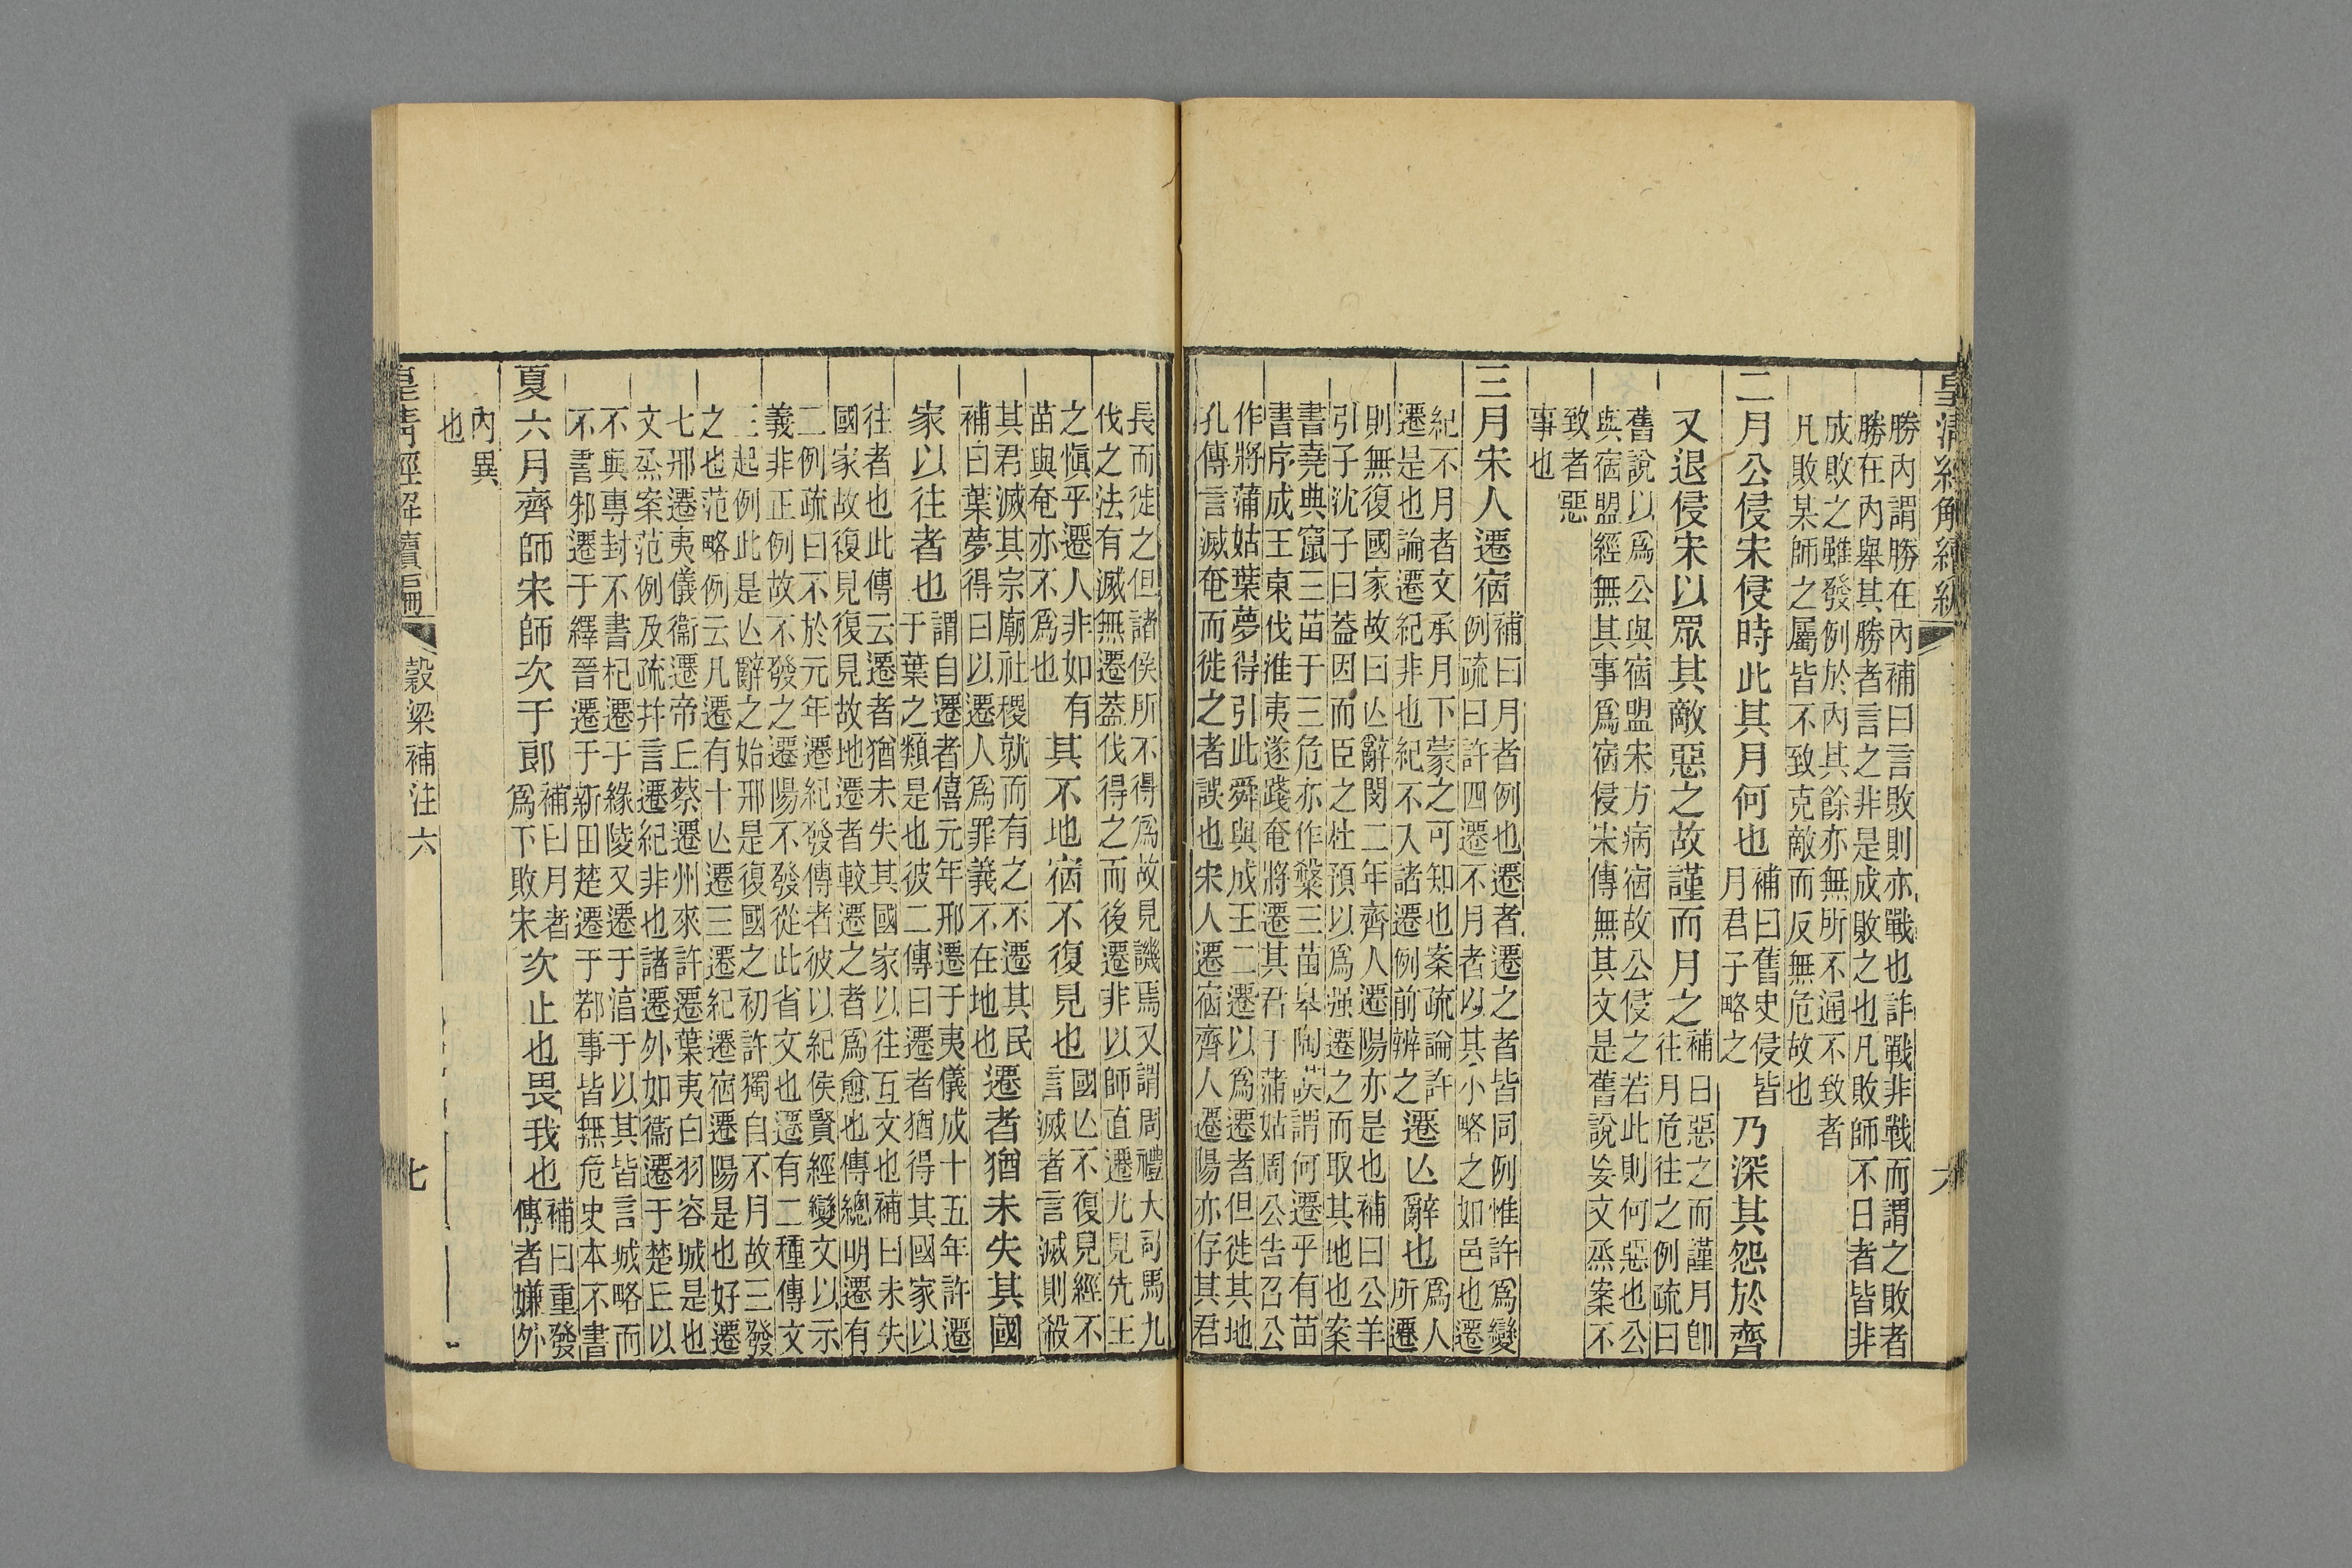 勝內謂勝在內補曰言敗則亦戰也詐戰非戰而謂之敗者
勝在內舉其勝者言之非是成敗之也凡敗師不日者皆非
成敗之雖發例於內其餘亦無所不通不致者
凡敗某師之屬皆不致克敵而反無危故也
二月公侵宋侵時此其月何也補曰舊史侵皆
月君子略之乃深其怨於齊
又退侵宋以眾其敵惡之故謹而月之補曰惡之而謹月卽
往月危往之例疏曰
舊說以爲公與宿盟宋方病宿故公侵之若此則何惡也公
與宿盟經無其事爲宿侵宋傳無其文是舊說妄文烝案不
致者惡
事也
三月宋人遷宿補曰月者例也遷者遷之者皆同例惟許爲變
例疏曰許四遷不月者以其小略之如邑也遷
紀不月者文承月下蒙之可知也案疏論許
遷是也論遷紀非也紀不入諸遷例前辨之遷亾辭也爲人
所遷
則無復國家故曰亾辭閔二年齊人遷陽亦是也補曰公羊
引子沈子曰葢因而臣之杜預以爲强遷之而取其地也案
書堯典竄三苗于三危亦作㩼三苗皋陶謨謂何遷乎有苗
書序成王東伐淮夷遂踐奄將遷其君于蒲姑周公告召公
作將蒲姑葉夢得引此舜與成王二遷以爲遷者但徙其地
孔傳言滅奄而徙之者誤也宋人遷宿齊人遷陽亦存其君
長而徙之但諸侯所不得爲故見譏焉又謂周禮大司馬九
伐之法有滅無遷葢伐得之而後遷非以師直遷尤見先王
之愼乎遷人非如有
苗與奄亦不爲也其不地宿不復見也國亾不復見經不
言滅者言滅則殺
其君滅其宗廟社稷就而有之不遷其民
補曰葉夢得曰以遷人爲罪義不在地也遷者猶未失其國
家以往者也謂自遷者僖元年邢遷于夷儀成十五年許遷
于葉之類是也彼二傳曰遷者猶得其國家以
往者也此傳云遷者猶未失其國家以往互文也補曰未失
國家故復見復見故地遷者較遷之者爲愈也傳總明遷有
二例疏曰不於元年遷紀發傳者彼以紀侯賢經變文以示
義非正例故不發之遷陽不發從此省文也遷有二種傳文
三起例此是亾辭之始邢是復國之初許獨自不月故三發
之也范略例云凡遷有十亾遷三遷紀遷宿遷陽是也好遷
七邢遷夷儀衞遷帝丘蔡遷州來許遷葉夷白羽容城是也
文烝案范例及疏幷言遷紀非也諸遷外如衞遷于楚丘以
不與專封不書杞遷于緣陵又遷于湻于以其皆言城略而
不書邾遷于繹晉遷于新田楚遷于鄀事皆無危史本不書
夏六月齊師宋師次于郎補曰月者
爲下敗宋次止也畏我也補曰重發
傳者嫌外
內異
也
皇清經解續編
穀梁補注六
七